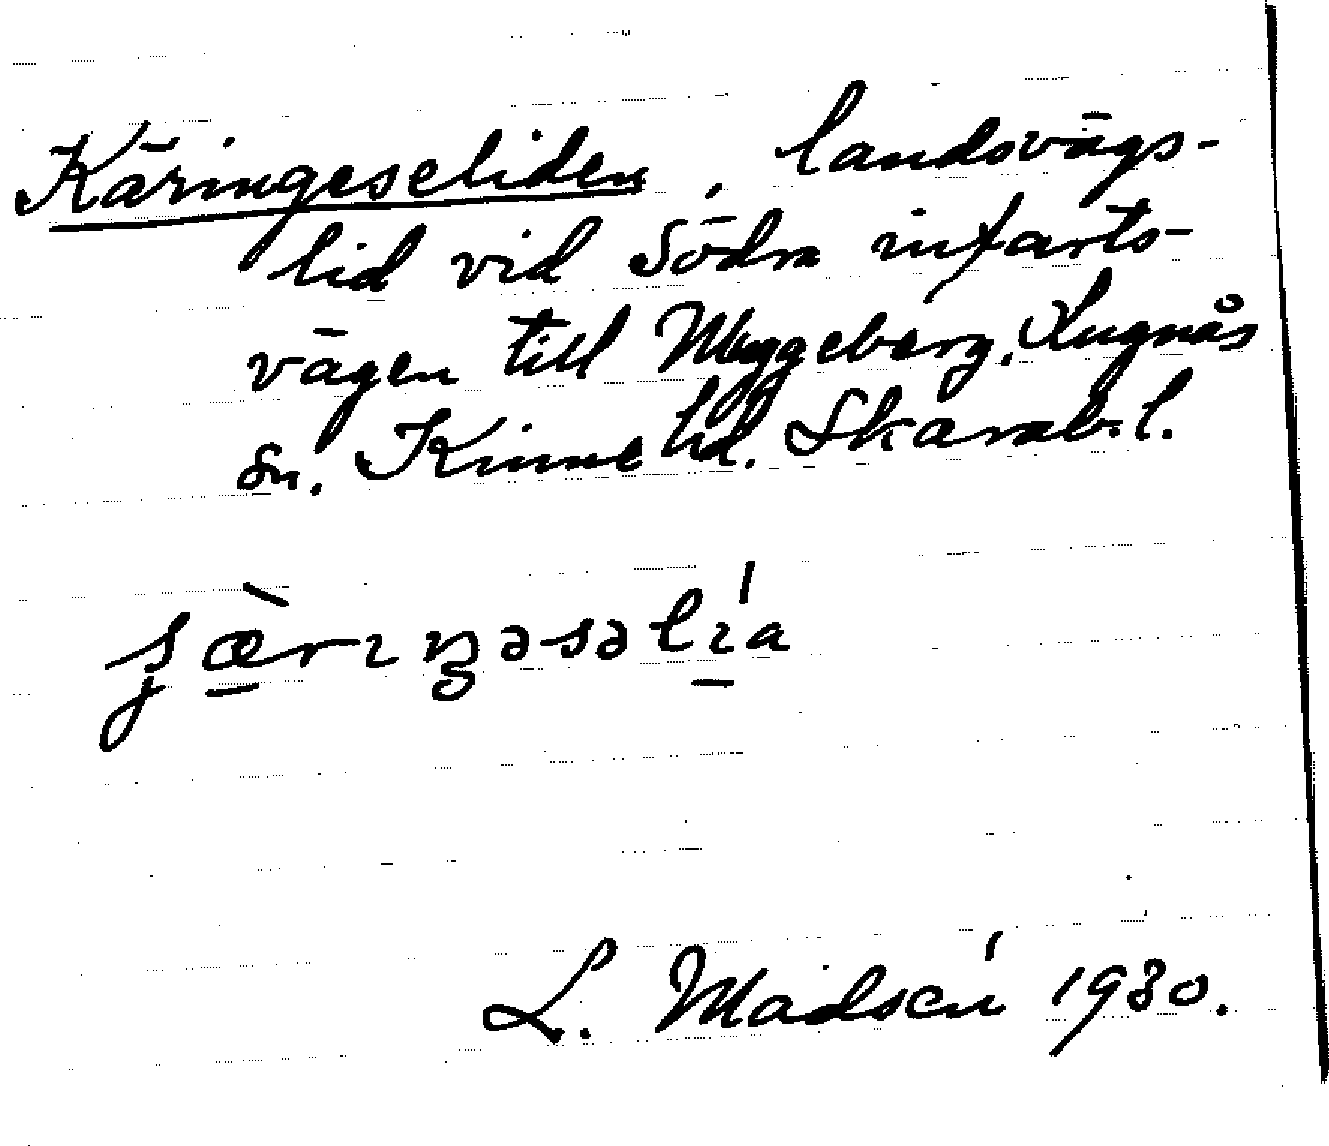 Käringeseliden, landsvägs-
lid vid Södra infarts-
vägen till Myggeberg. Lugnås
sn. Kinne hd. Skarab. l.
L. Madsén 1930.